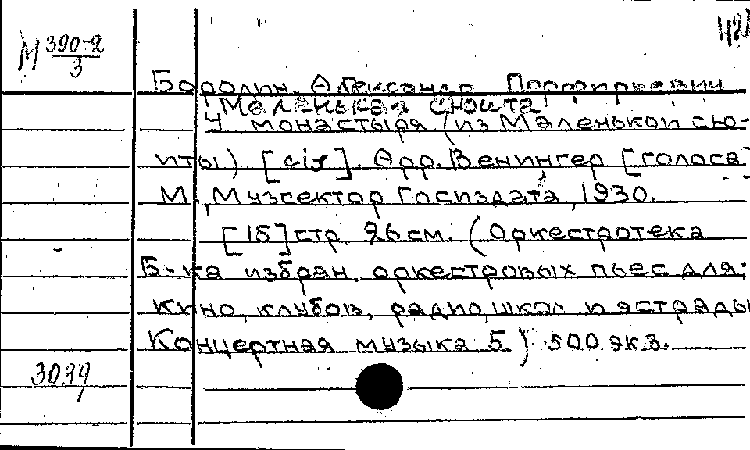 М 390-2
3
Бородин, Александр Порфирьевич
Маленькая сюита
У монастыря (из Маленькой сю-
иты) [cis]. Арр. Венингер [голоса]
М., Музсектор Госиздата, 1930.
[15] стр. 26 см. (Оркестротека
Б-ка избран. оркестровых пьес для
кино, клубов, радио, школ и эстрады
Концертная музыка 5) 500 экз.
3039